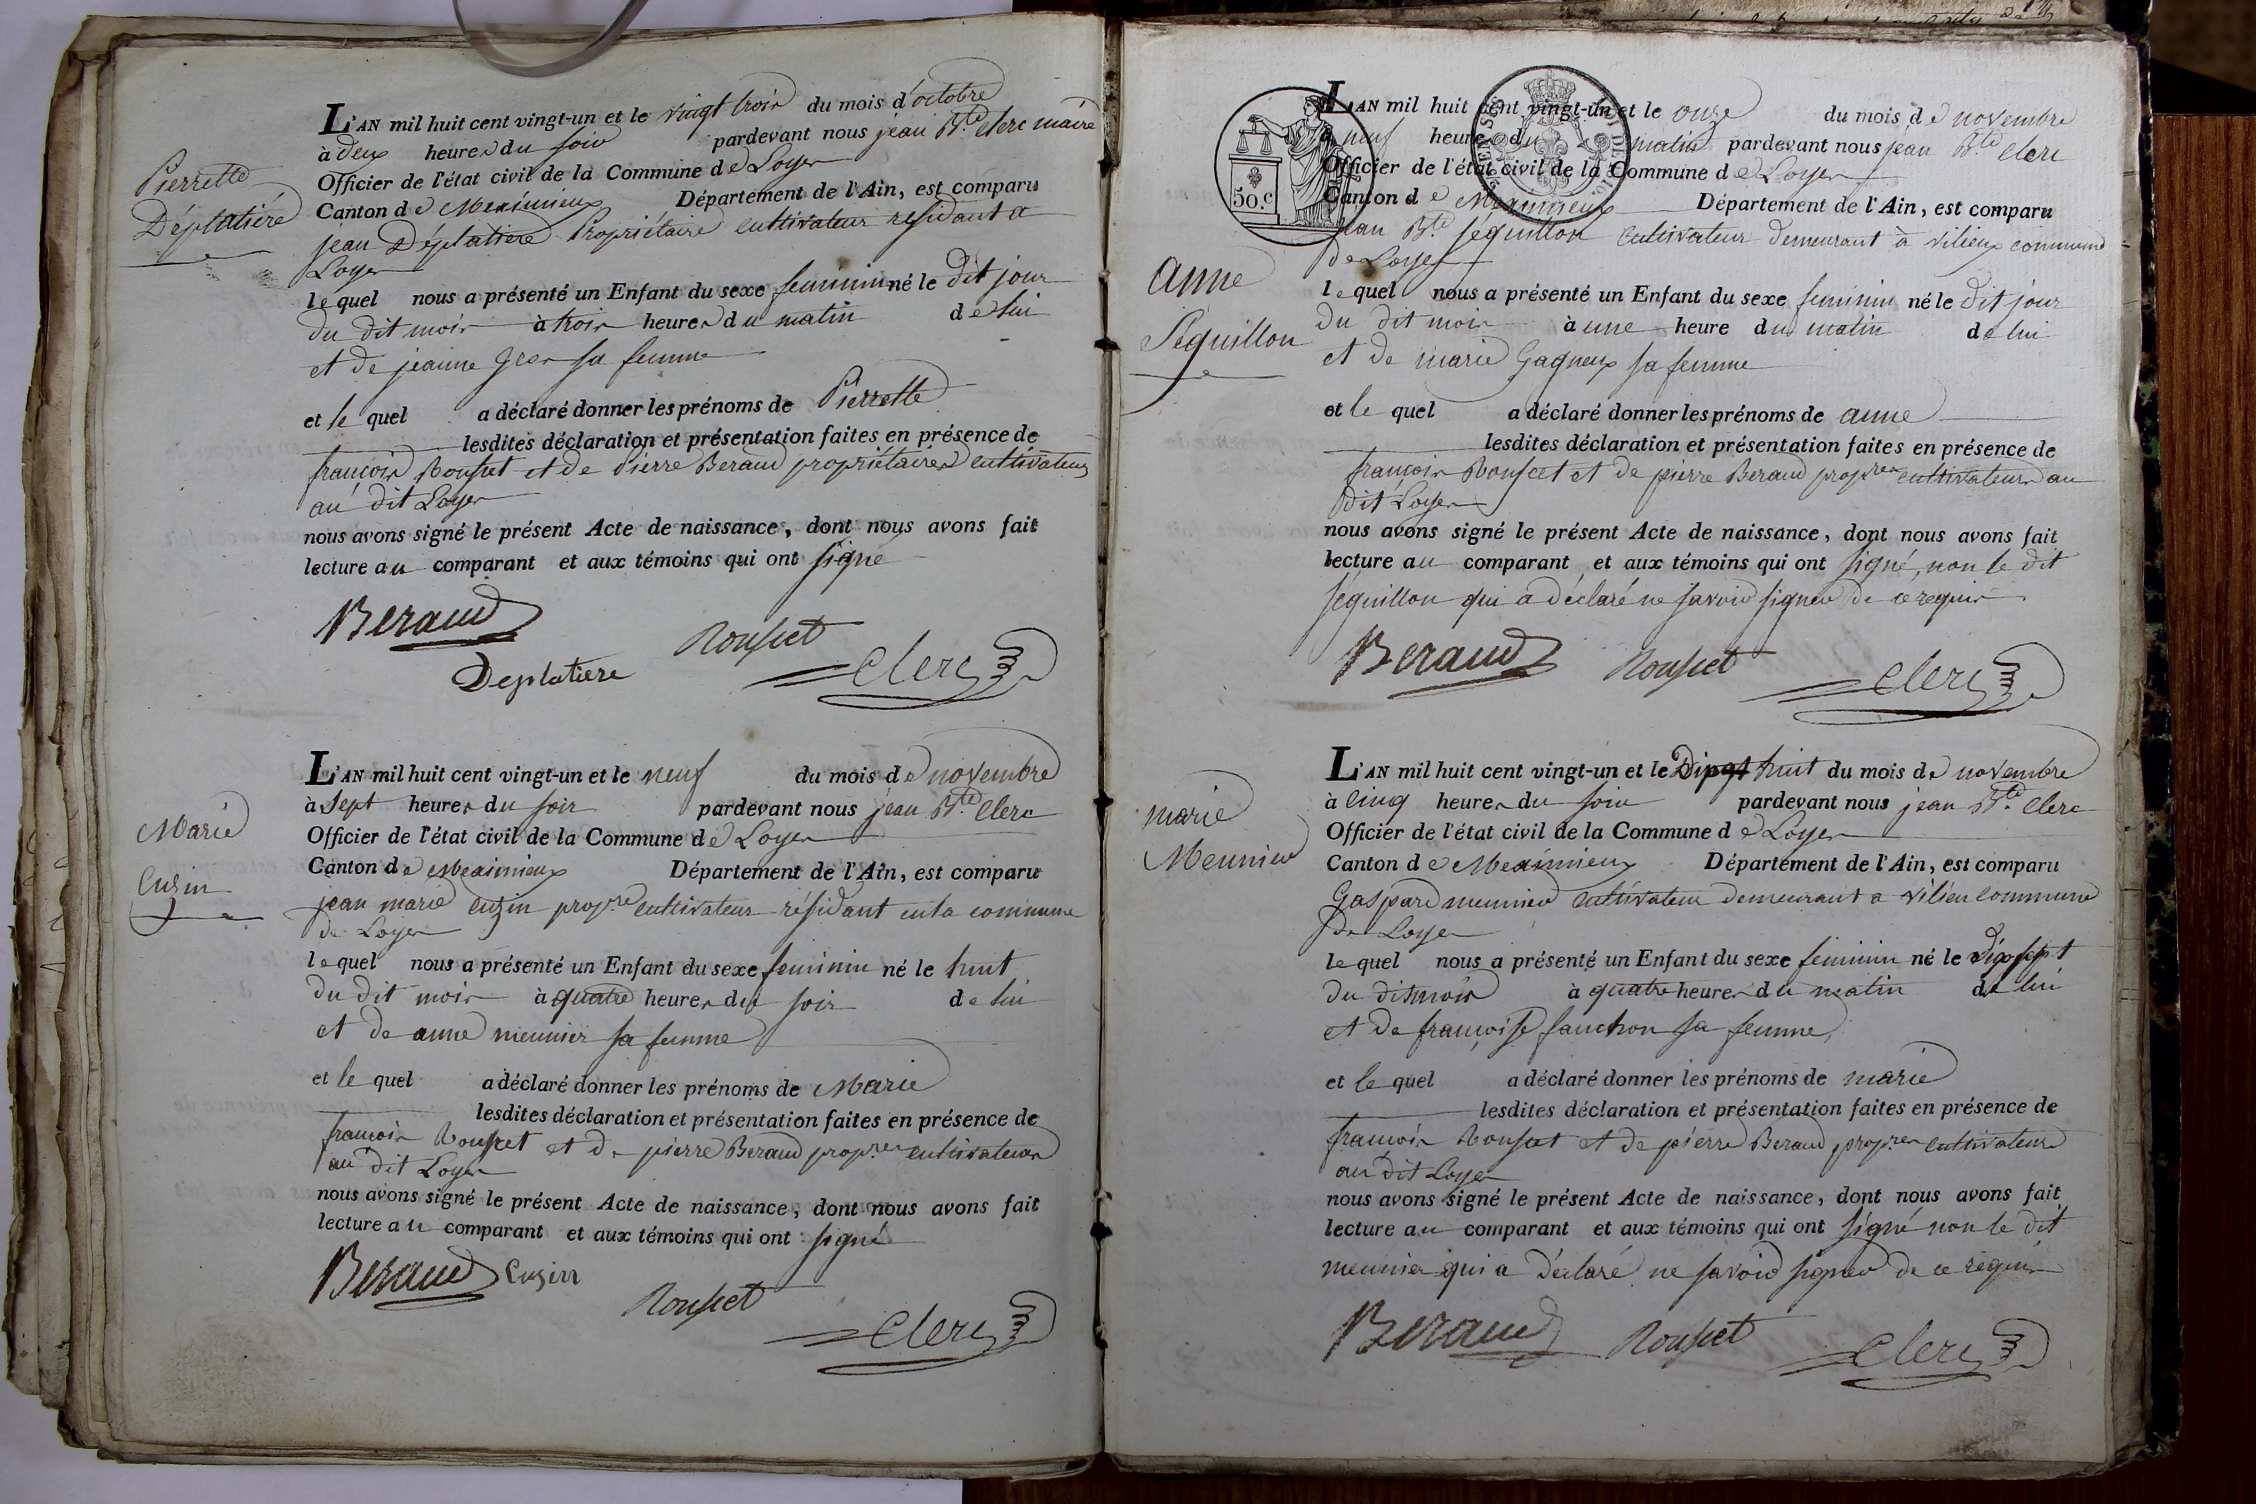 Pierrette
Déplatiére
L'AN mil huit cent vingt-un et le vingt trois du mois d'octobre
à deux heures du soir pardevant nous jean Bte clerc maire
Officier de l'état civil de la Commune de Loyes
Canton de Meximieux Département de l'Ain, est comparu
jean Déplatiere Propriétaire cultivateur résidant a
Loyes
lequel nous a présenté un Enfant du sexe feminin né le dit jour
du dit mois à trois heures du matin de lui
et de jeanne sa femme
et le quel a déclaré donner les prénoms de Pierrette
lesdites déclaration et présentation faites en présence de
françois Rousset et de Pierre Beraud propriétaires cultivateurs
au dit Loyes
nous avons signé le présent Acte de naissance, dont nous avons fait
lecture au comparant et aux témoins qui ont signé
Beraud
Rousset
Deplatiere
Clerc
Marie
Cuzin
L'AN mil huit cent vingt-un et le neuf du mois de novembre
à sept heures du soir pardevant nous jean Bte Clerc
Officier de l'état civil de la Commune de Loyes
Canton de Meximieux Département de l'Ain, est comparu
jean marie cuzin propre cultivateur résidant en la commune
de Loyes
lequel nous a présenté un Enfant du sexe feminin né le huit
du dit mois à quatre heures du soir de lui
et de anne meunier sa femme
et le quel a déclaré donner les prénoms de Marie
lesdites déclaration et présentation faites en présence de
francois Rousset et de pierre Beraud propres cultivateurs
au dit Loyes
nous avons signé le présent Acte de naissance, dont nous avons fait
lecture au comparant et aux témoins qui ont signé
Beraud Cuzin
Rousset
Clerc
50.c
anne
Séquillon
L'AN mil huit cent vingt-un et le onze du mois de novembre
à neuf heures du matin pardevant nous jean Bte Clerc
Officier de l'état civil de la Commune de Loyes
Canton de Meximieux Département de l'Ain, est comparu
jean Bte séquillon cultivateur demeurant à vilieux commune
de Loyes
lequel nous a présenté un Enfant du sexe feminin né le dit jour
du dit mois à une heure du matin de lui
et de marie Gagneux sa femme
et le quel a déclaré donner les prénoms de anne
lesdites déclaration et présentation faites en présence de
françois Rousset et de pierre Beraud propres cultivateurs au
dit Loyes
nous avons signé le présent Acte de naissance, dont nous avons fait
lecture au comparant et aux témoins qui ont signé, non le dit
séquillon qui a déclaré ne savoir signer de ce requis
Beraud Rousset
Clerc
marie
Meunier
L'AN mil huit cent vingt-un et le huit du mois de novembre
à cinq heures du soir pardevant nous jean Bte Clerc
Officier de l'état civil de la Commune de Loyes
Canton de Meximieux Département de l'Ain, est comparu
Gaspard meunier cultivateur demeurant a vilieu commune
de Loyes
lequel nous a présenté un Enfant du sexe feminin né le dix sept
du dit mois à quatre heures du matin de lui
et de françoise fanchon sa femme
et le quel a déclaré donner les prénoms de marie
lesdites déclaration et présentation faites en présence de
françois Rousset et de pierre Beraud propres cultivateurs
au dit Loyes
nous avons signé le présent Acte de naissance, dont nous avons fait
lecture au comparant et aux témoins qui ont signé non le dit
meunier qui a déclaré ne savoir signer de ce requis
Beraud Rousset
Clerc